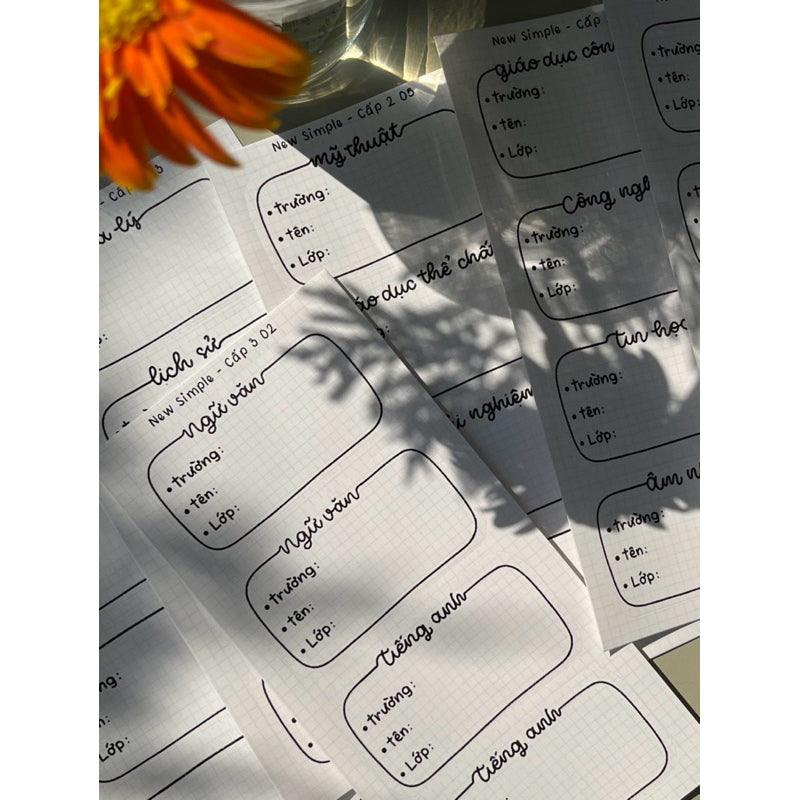 New Simple - Cấp
giáo dục côn
• trường:
• tên:
• Lớp:
Công ngh
• trường:
• tên:
• Lớp:
tin học
• trường:
• tên:
• Lớp:
âm n
• trường:
• tên:
• Lớp:
• trường:
• tên:
• Lớp:
New Simple - Cấp 2 05
mỹ thuật
• trường:
• tên:
• Lớp:
áo dục thể chấ
i nghiệm
- Cấp 3
lý
lịch sử
New Simple - Cấp 3 02
ngữ văn
• trường:
• tên:
• Lớp:
ngữ văn
• trường:
• tên:
• Lớp:
tiếng anh
• trường:
• tên:
• Lớp:
tiếng anh
ng:
n:
Lớp: